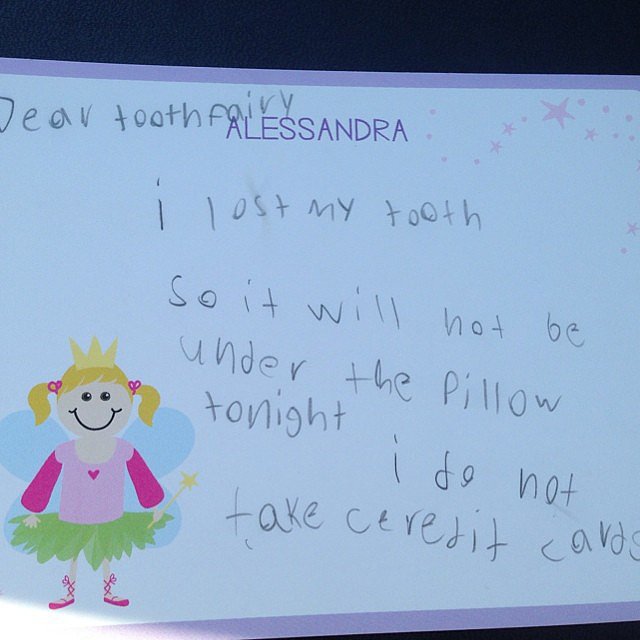 Dear toothfairy
ALESSANDRA
i lost my tooth
So it will not be
under the pillow
tonight
i do not
take ceredit cards